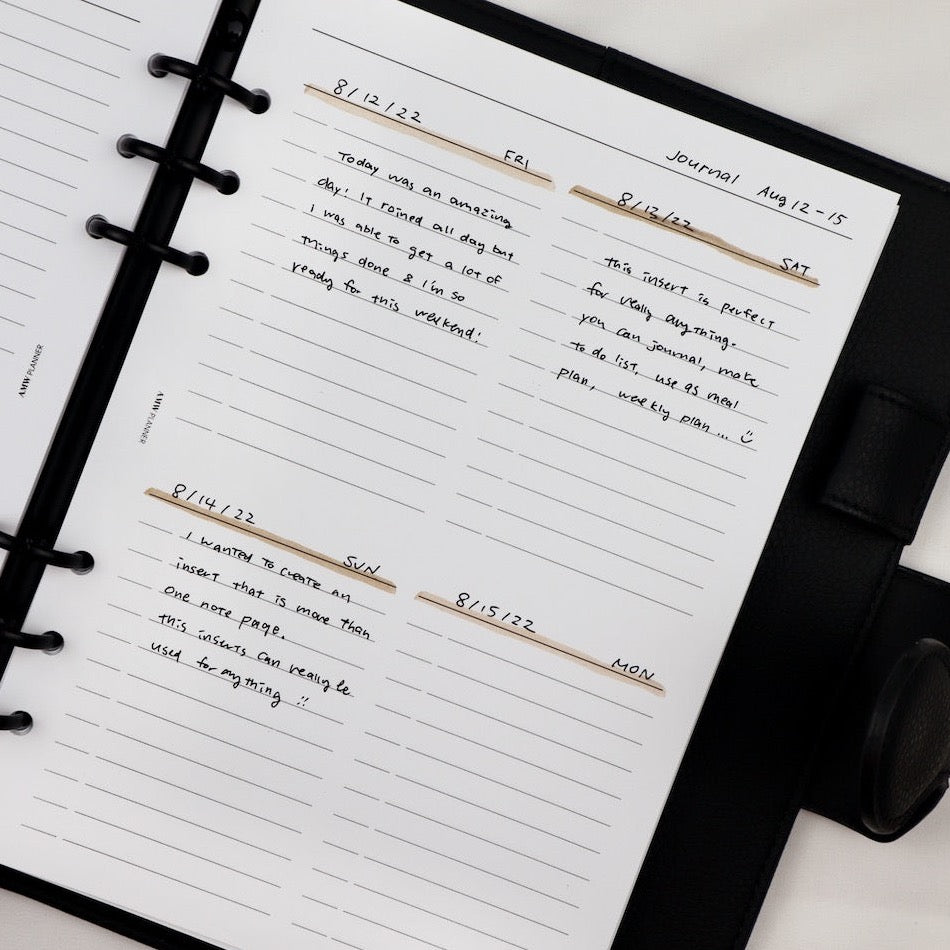 Journal Aug 12-15
8/12/22
FRI
Today was an amazing
day! It rained all day but
I was able to get a lot of
things done & I'm so
ready for this weekend!
8/13/22
SAT
this insert is perfect
for really anything.
you can journal, make
to do list, use as meal
plan, weekly plan... :)
8/14/22
SUN
I wanted to create an
insert that is more than
one note page.
this inserts can really be
used for anything !!
8/15/22
MON
AMW PLANNER
AMW PLANNER